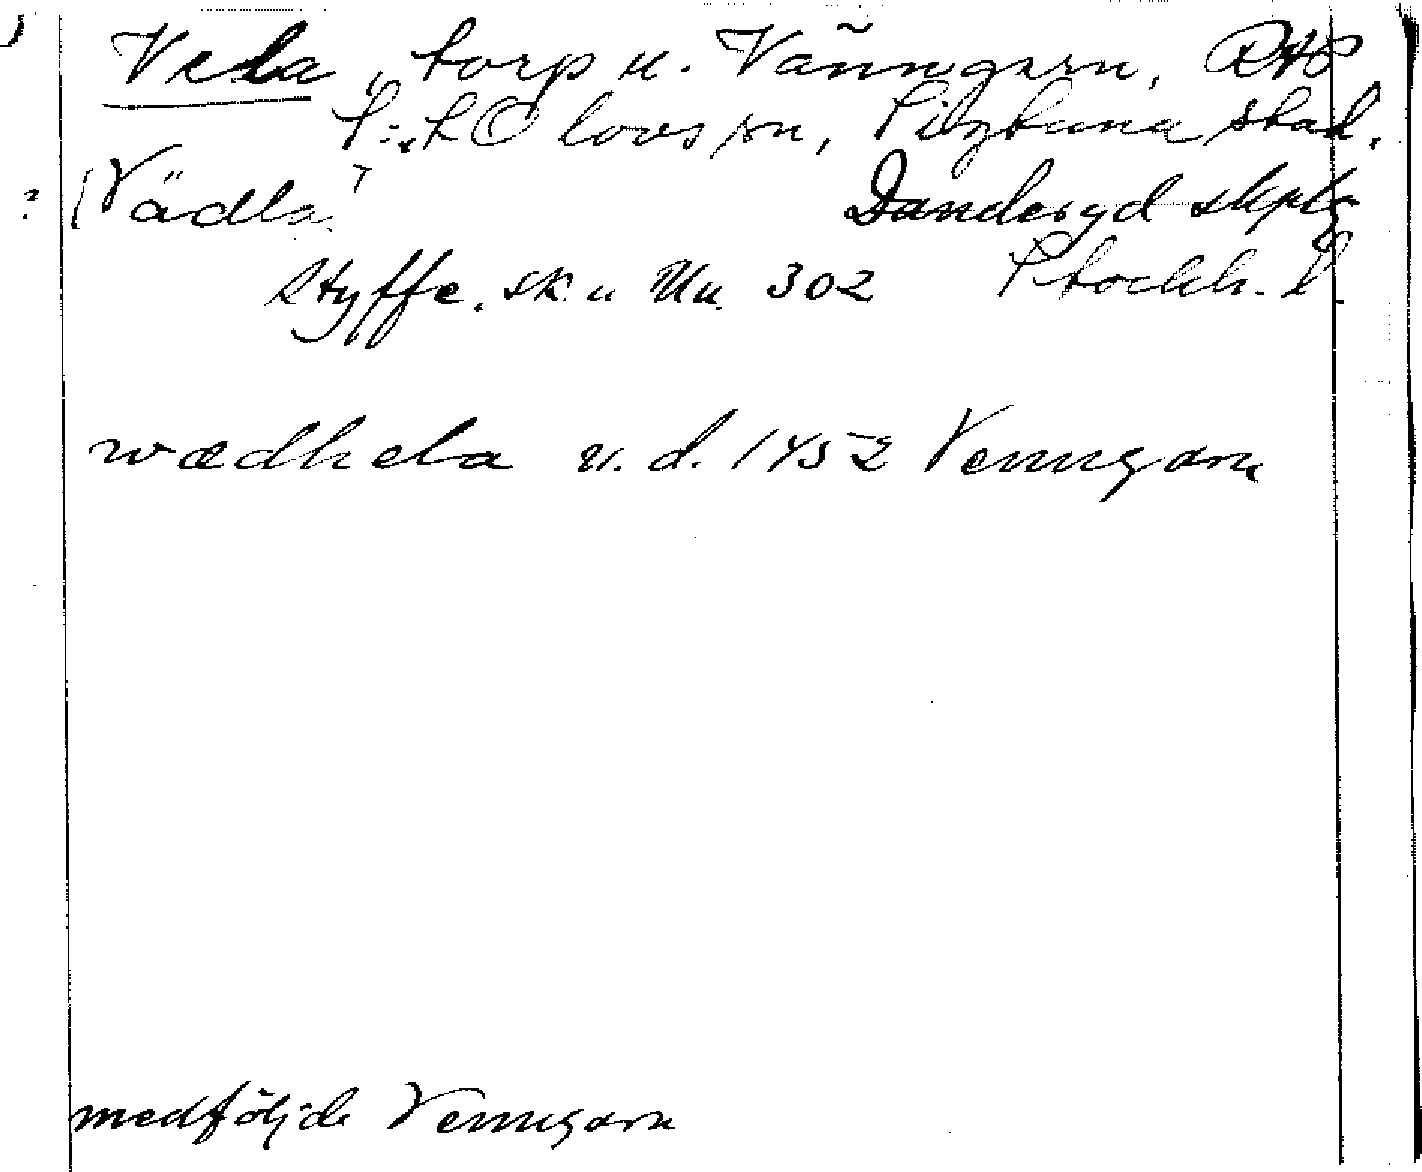 Vela, torp u. Vänngarn, RHS
S:t Olovs sn, Sigtuna stad,
? (Vädla? Danderyd skplg
Styffe. sk. u Un. 302 Stockh. l.
wædhela u. d. 1452 Venngarn
medföljde Venngarn